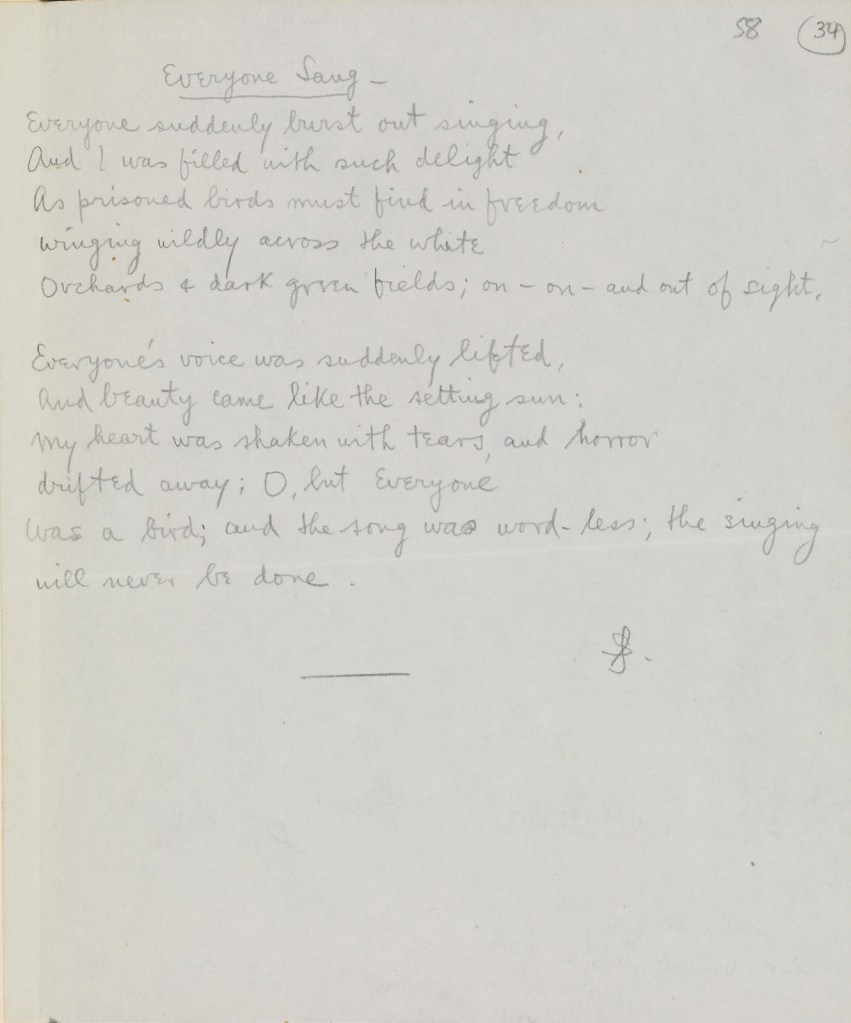 58 34
Everyone Sang -
Everyone suddenly burst out singing,
And I was filled with such delight
As prisoned birds must find in freedom
winging wildly across the white
Orchards & dark green fields; on - on - and out of sight.
Everyone's voice was suddenly lifted,
And beauty came like the setting sun:
My heart was shaken with tears, and horror
drifted away; O, but Everyone
Was a bird; and the song was word-less; the singing
will never be done.